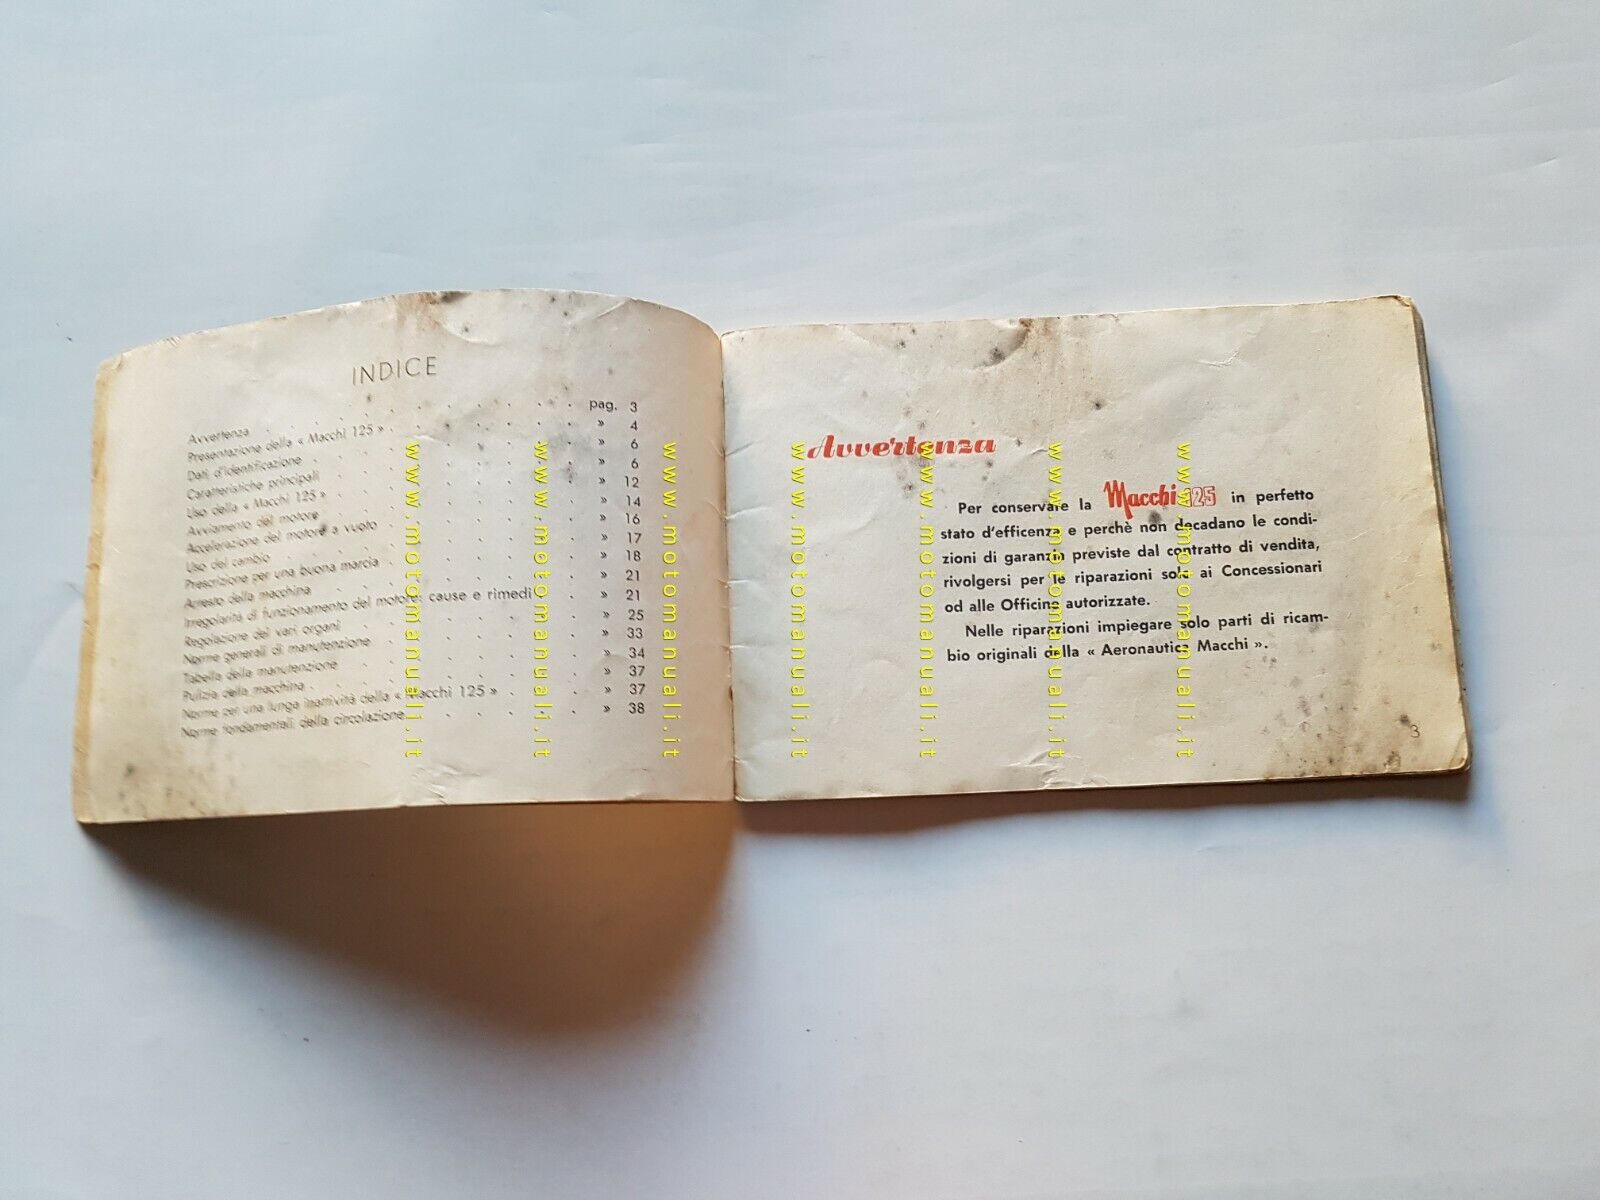 INDICE
Avvertenza . . . . . . . . . . pag. 3
Presentazione della « Macchi 125 » . . . . . . » 4
Dati d'identificazione . . . . . . . . . » 6
Caratteristiche principali . . . . . . . . » 6
Uso della « Macchi 125 » . . . . . . . . » 12
Avviamento del motore . . . . . . . . » 14
Accelerazione del motore a vuoto . . . . . . » 16
Uso del cambio . . . . . . . . . » 17
Prescrizione per una buona marcia . . . . . . » 18
Arresto della macchina . . . . . . . . » 21
Irregolarità di funzionamento del motore: cause e rimedi . . » 21
Regolazione dei vari organi . . . . . . . » 25
Norme generali di manutenzione . . . . . . » 33
Tabella della manutenzione . . . . . . . » 34
Pulizia della macchina . . . . . . . . » 37
Norme per una lunga inattività della « Macchi 125 » . . . » 37
Norme fondamentali della circolazione . . . . . . » 38
Avvertenza
Per conservare la Macchi 125 in perfetto
stato d'efficenza e perchè non decadano le condi-
zioni di garanzia previste dal contratto di vendita,
rivolgersi per le riparazioni solo ai Concessionari
od alle Officine autorizzate.
Nelle riparazioni impiegare solo parti di ricam-
bio originali della « Aeronautica Macchi ».
3
www.motomanuali.it
www.motomanuali.it
www.motomanuali.it
www.motomanuali.it
www.motomanuali.it
www.motomanuali.it
www.motomanuali.it